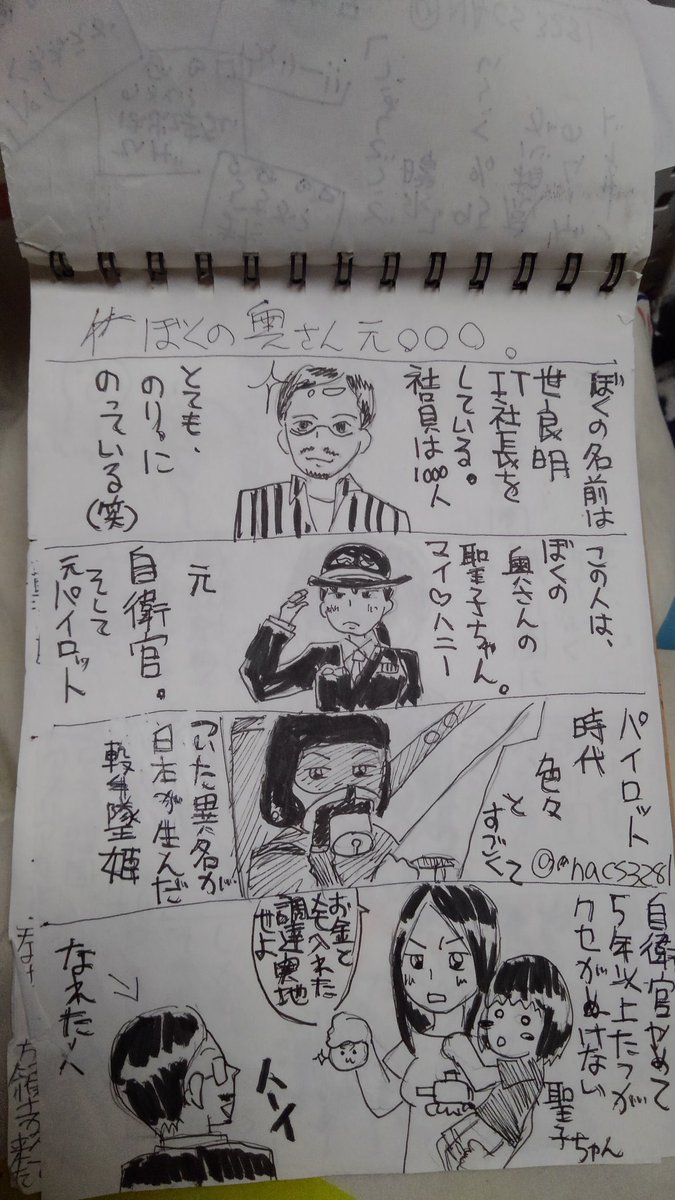 ぼくの奥さん元○○○。
ぼくの名前は
世良明
IT社長を
している。
社員は1000人
とても、
のりに
のっている
(笑)
この人は、
ぼくの
奥さんの
聖子ちゃん。
マイ♡ハニー
元
自衛官。
そして
元パイロット
パイロット
時代
色々
と
すごくて
@nacs3281
ついた異名が
日本が生んだ
撃墜姫
自衛官やめて
5年以上たつが
クセがぬけない
聖子ちゃん
お金と
調達実地
せよ
ハーイ
なれた